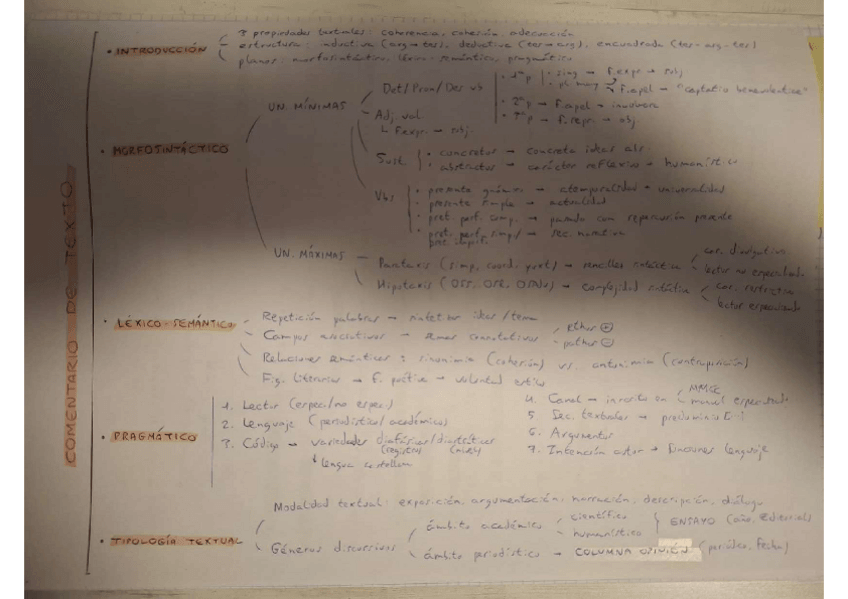 COMENTARIO DE TEXTO
• INTRODUCCIÓN
3 propiedades textuales: coherencia, cohesión, adecuación
estructura: inductiva (arg → tes), deductiva (tes → arg), encuadrada (tes-arg-tes)
planos: morfosintáctico, léxico-semántico, pragmático
• MORFOSINTÁCTICO
UN. MÍNIMAS
Det/Pron/Des vb
1ª p
• sing → f.expr. → subj
• pl → f.apel → "captatio benevolentiae"
• 2ª p → f.apel → involucra
• 3ª p → f.repr. → obj.
Adj. val.
↳ f.expr. → subj.
Sust.
• concretos → concreta ideas abs.
• abstractos → carácter reflexivo → humanístico
Vbs
• presente gnómico → atemporalidad + universalidad
• presente simple → actualidad
• pret. perf. comp. → pasado con repercusión presente
• pret. perf. simp/ pret. imperf. → sec. narrativa
UN. MÁXIMAS
Parataxis (simp, coord, yuxt) → sencillez sintáctica
car. divulgativo
lector no especializado
Hipotaxis (OSS, OSA, OSAdv) → complejidad sintáctica
car. restrictivo
lector especializado
• LÉXICO-SEMÁNTICO
Repetición palabras → sintetizar ideas/tema
Campos asociativos → semas connotativos
ethos ⊕
pathos ⊖
Relaciones semánticas: sinonimia (cohesión) vs. antonimia (contraposición)
Fig. literarias → f. poética → voluntad estilo
• PRAGMÁTICO
1. Lector (espec/no espec.)
2. Lenguaje (periodístico/académico)
3. Código → variedades diafásicas/diastráticas
(registro) (nivel)
lengua castellana
4. Canal → inscrito en
MMCC
manual especializado
5. Sec. textuales → predominio E-A
6. Argumentos
7. Intención autor → Funciones lenguaje
• TIPOLOGÍA TEXTUAL
Modalidad textual: exposición, argumentación, narración, descripción, diálogo
Géneros discursivos
ámbito académico
científico
humanístico
ENSAYO (año, editorial)
ámbito periodístico → COLUMNA OPINIÓN (periódico, fecha)